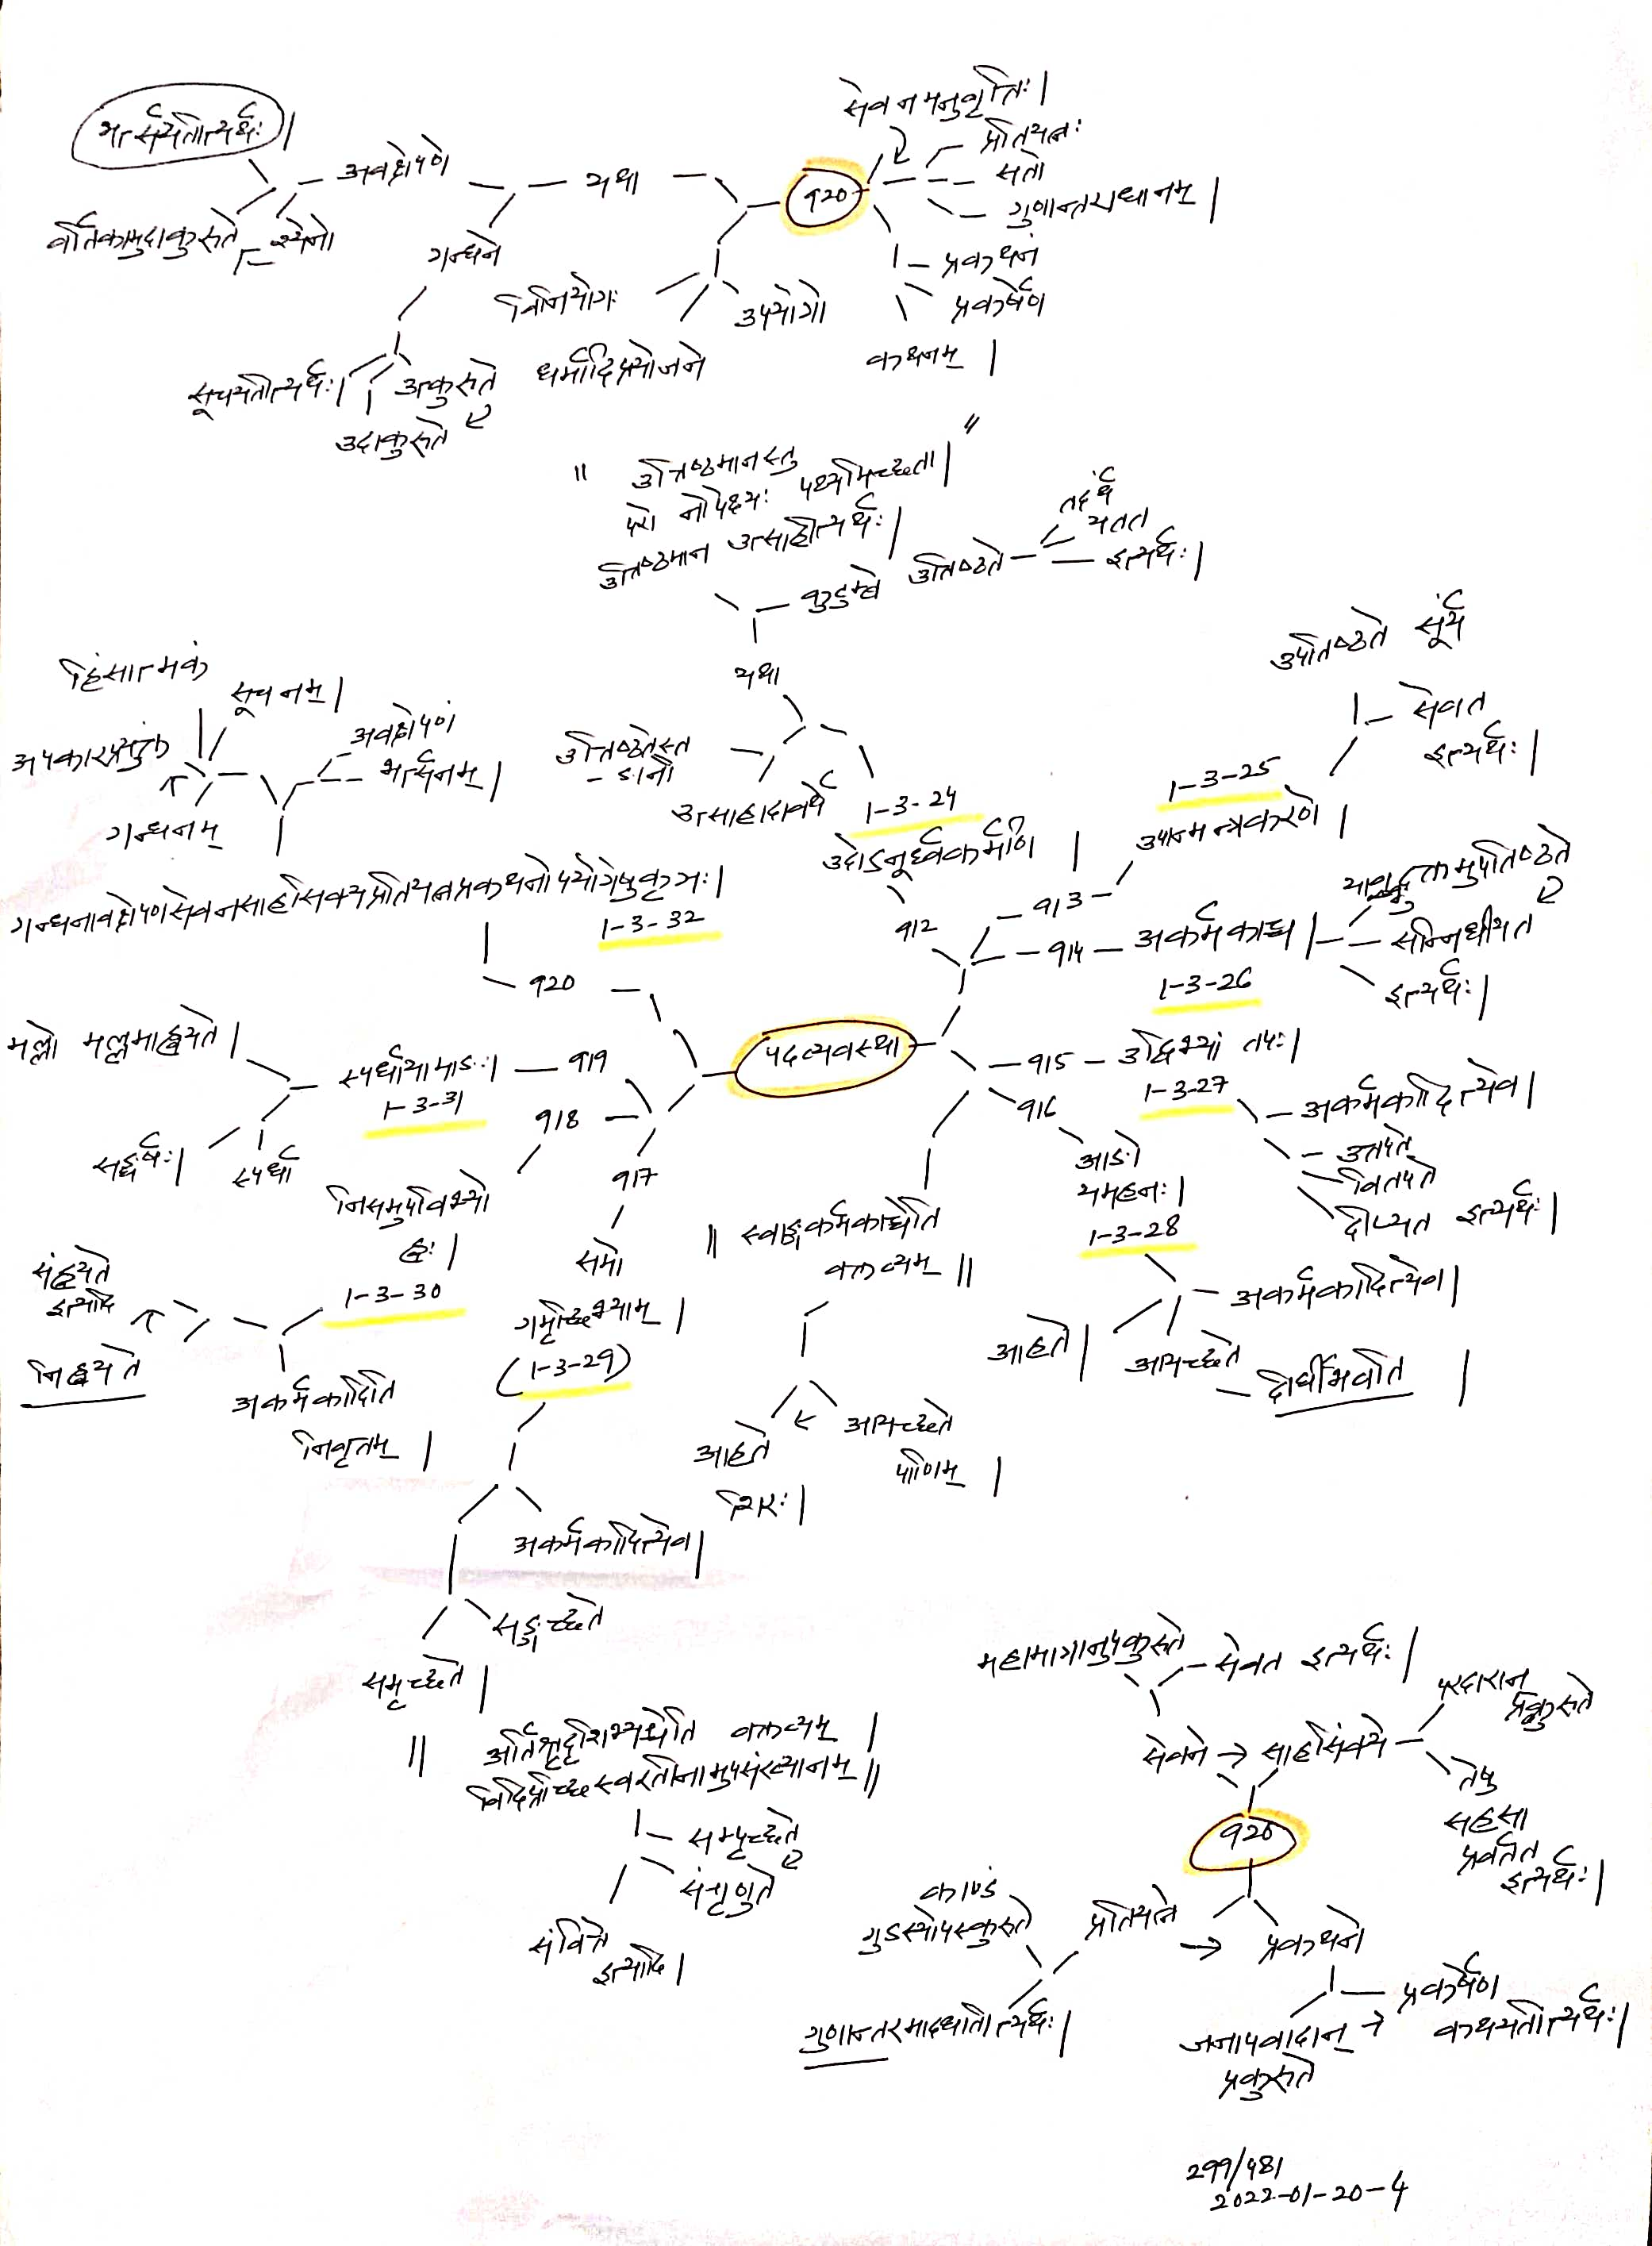 सेवनमनुवृत्तिः।
भर्त्सयतीत्यर्थः।
प्रतियत्नः
अवक्षेपणे
यथा
९२०
सतो
गुणान्तराधानम्।
वर्तिकामुदाकुरुते
श्येनो
गन्धने
प्रकथनं
विनियोगः
उपयोगो
प्रकर्षेण
कथनम्।
धर्मादिप्रयोजने
सूचयतीत्यर्थः।
उत्कुरुते
उदाकुरुते
" उत्तिष्ठमानस्तु
परो नोपेक्ष्यः पथ्यमिच्छता। "
उत्तिष्ठमान उत्साहीत्यर्थः।
तदर्थं
यतत
कुटुम्बे
उत्तिष्ठते
इत्यर्थः।
यथा
उपतिष्ठते सूर्यं
सेवत
इत्यर्थः।
हिंसात्मकं
सूचनम्।
अपकारप्रयुक्तं
अवक्षेपणं
भर्त्सनम्।
गन्धनम्
उत्तिष्ठतेस्त
-ङानौ
उत्साहादावर्थे
1-3-24
1-3-25
उदोऽनूर्ध्वकर्मणि।
उपान्मन्त्रकरणे।
गन्धनावक्षेपणसेवनसाहसिक्यप्रतियत्नप्रकथनोपयोगेषु कृञः।
1-3-32
९१२
९१३
९१४ अकर्मकाच्च।
1-3-26
सन्निधीयत
इत्यर्थः।
९२०
मल्लो मल्लमाह्वयते।
स्पर्धायामाङः। ९१९
1-3-31
पदव्यवस्था
९१५ उद्विभ्यां तपः।
1-3-27
अकर्मकादित्येव।
उत्तपते
वितपते
दीप्यत इत्यर्थः।
९१८
९१६
सङ्घर्षः।
स्पर्धा
९१७
आङो
यमहनः।
1-3-28
निसमुपविभ्यो
ह्वः।
1-3-30
समो
गम्यृच्छिभ्याम्।
(1-3-29)
॥ स्वाङ्गकर्मकाच्चेति
वक्तव्यम् ॥
अकर्मकादित्येव।
आहते।
आयच्छते
- दीर्घीभवति।
संह्वयते
इत्यादि
निह्वयते
अकर्मकादिति
निवृत्तम्।
आहते
शिरः।
आयच्छते
पाणिम्।
अकर्मकादित्येव।
सङ्गच्छते
समृच्छते।
॥ अर्तिश्रुदृशिभ्यश्चेति वक्तव्यम्।
विदिप्रच्छिस्वरतीनामुपसंख्यानम् ॥
सम्पृच्छते
संशृणुते
संवित्ते
इत्यादि।
सेवत इत्यर्थः।
परदारान्
प्रकुरुते
सेवने → साहसिक्ये
तेषु
सहसा
प्रवर्तत
इत्यर्थः।
९२०
काण्डं
गुडस्योपस्कुरुते
प्रतियत्ने → प्रकथने
गुणान्तरमादधातीत्यर्थः।
जनापवादान् →
प्रकुरुते
प्रकर्षेण
कथयतीत्यर्थः।
299/481
2022-01-20-4